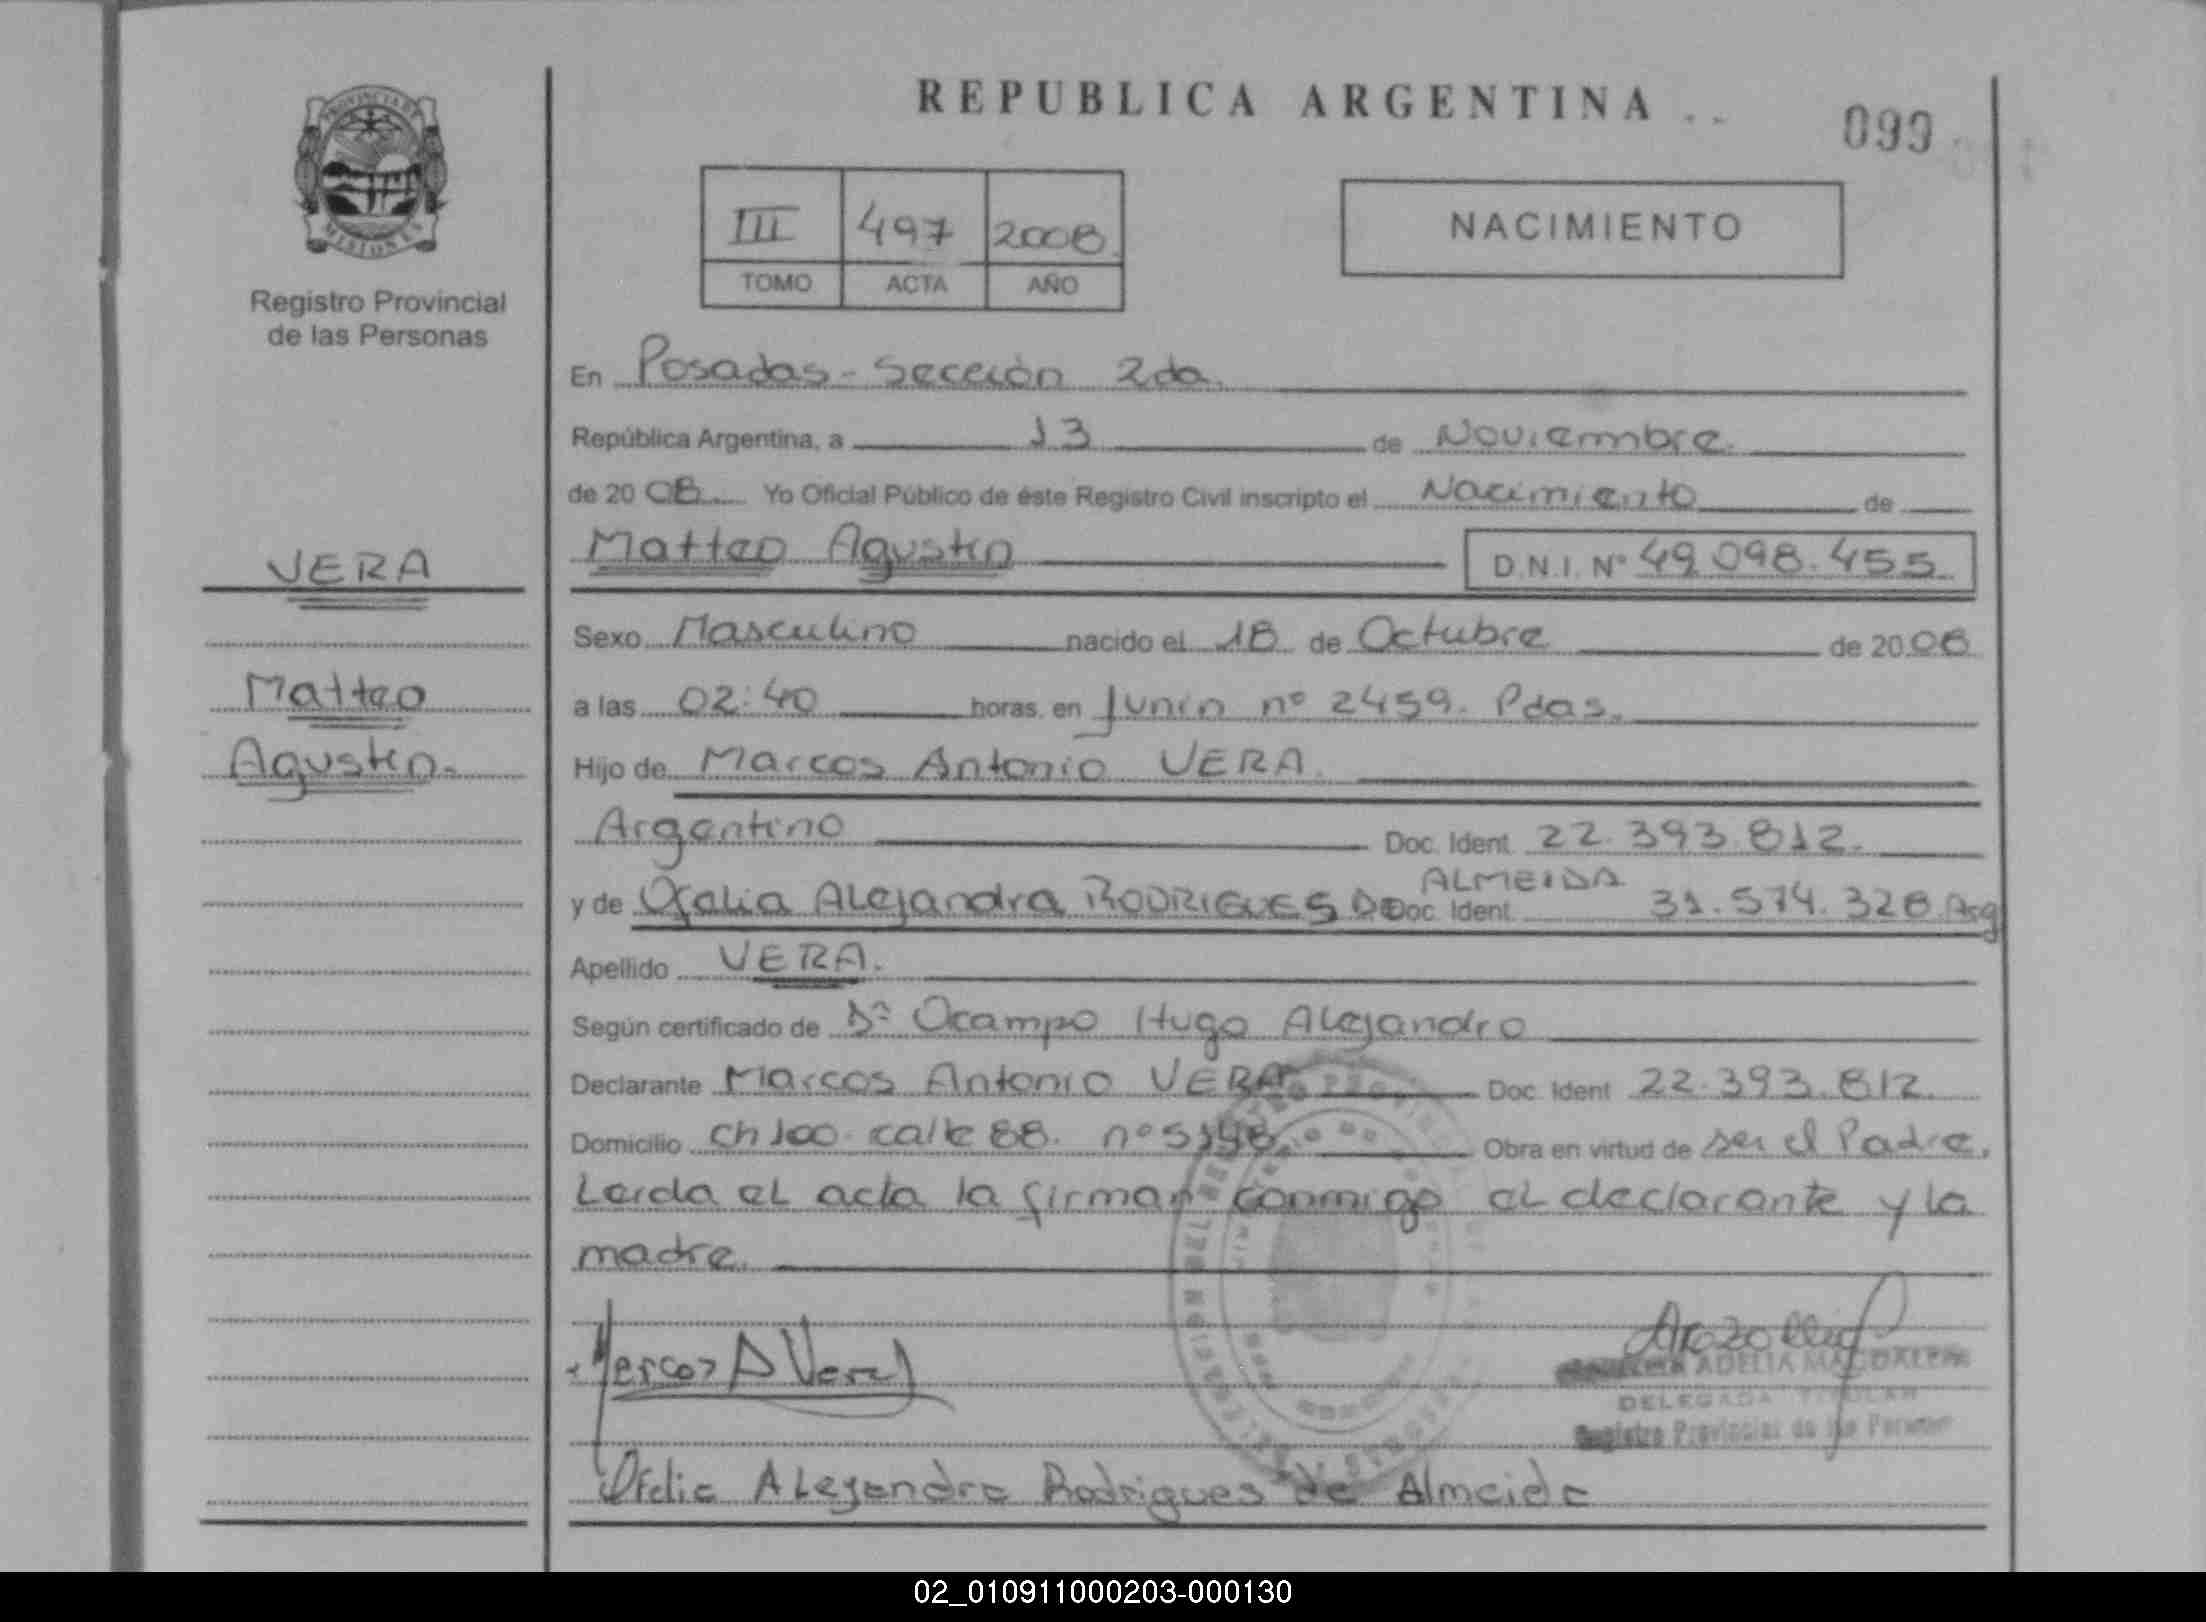 REPUBLICA ARGENTINA
099
PROVINCIA DE
MISIONES
Registro Provincial
de las Personas
III 497 2008
TOMO ACTA AÑO
NACIMIENTO
En Posadas - Sección 2da.
República Argentina, a 13 de Noviembre.
de 20 08 Yo Oficial Público de éste Registro Civil inscripto el Nacimiento de
VERA
Matteo Agustín
D.N.I. Nº 49.098.455
Sexo Masculino nacido el 18 de Octubre de 20 08
Matteo
a las 02:40 horas, en Junín nº 2459. Pdas.
Agustín.
Hijo de Marcos Antonio VERA.
Argentino Doc. Ident. 22.393.812.
ALMEIDA
y de Ofelia Alejandra RODRIGUES DE Doc. Ident. 31.574.328 Arg
Apellido VERA.
Según certificado de Dr Ocampo Hugo Alejandro
Declarante Marcos Antonio VERA Doc. Ident 22.393.812.
Domicilio Ch 100. calle 88. nº 5198 Obra en virtud de ser el Padre.
Leída el acta la firman conmigo el declarante y la
madre.
Marcos A Vera
ADELIA MAGDALENA
DELEGADA TITULAR
Registro Provincial de las Personas
Ofelia Alejandra Rodrigues de Almeida
02_010911000203-000130